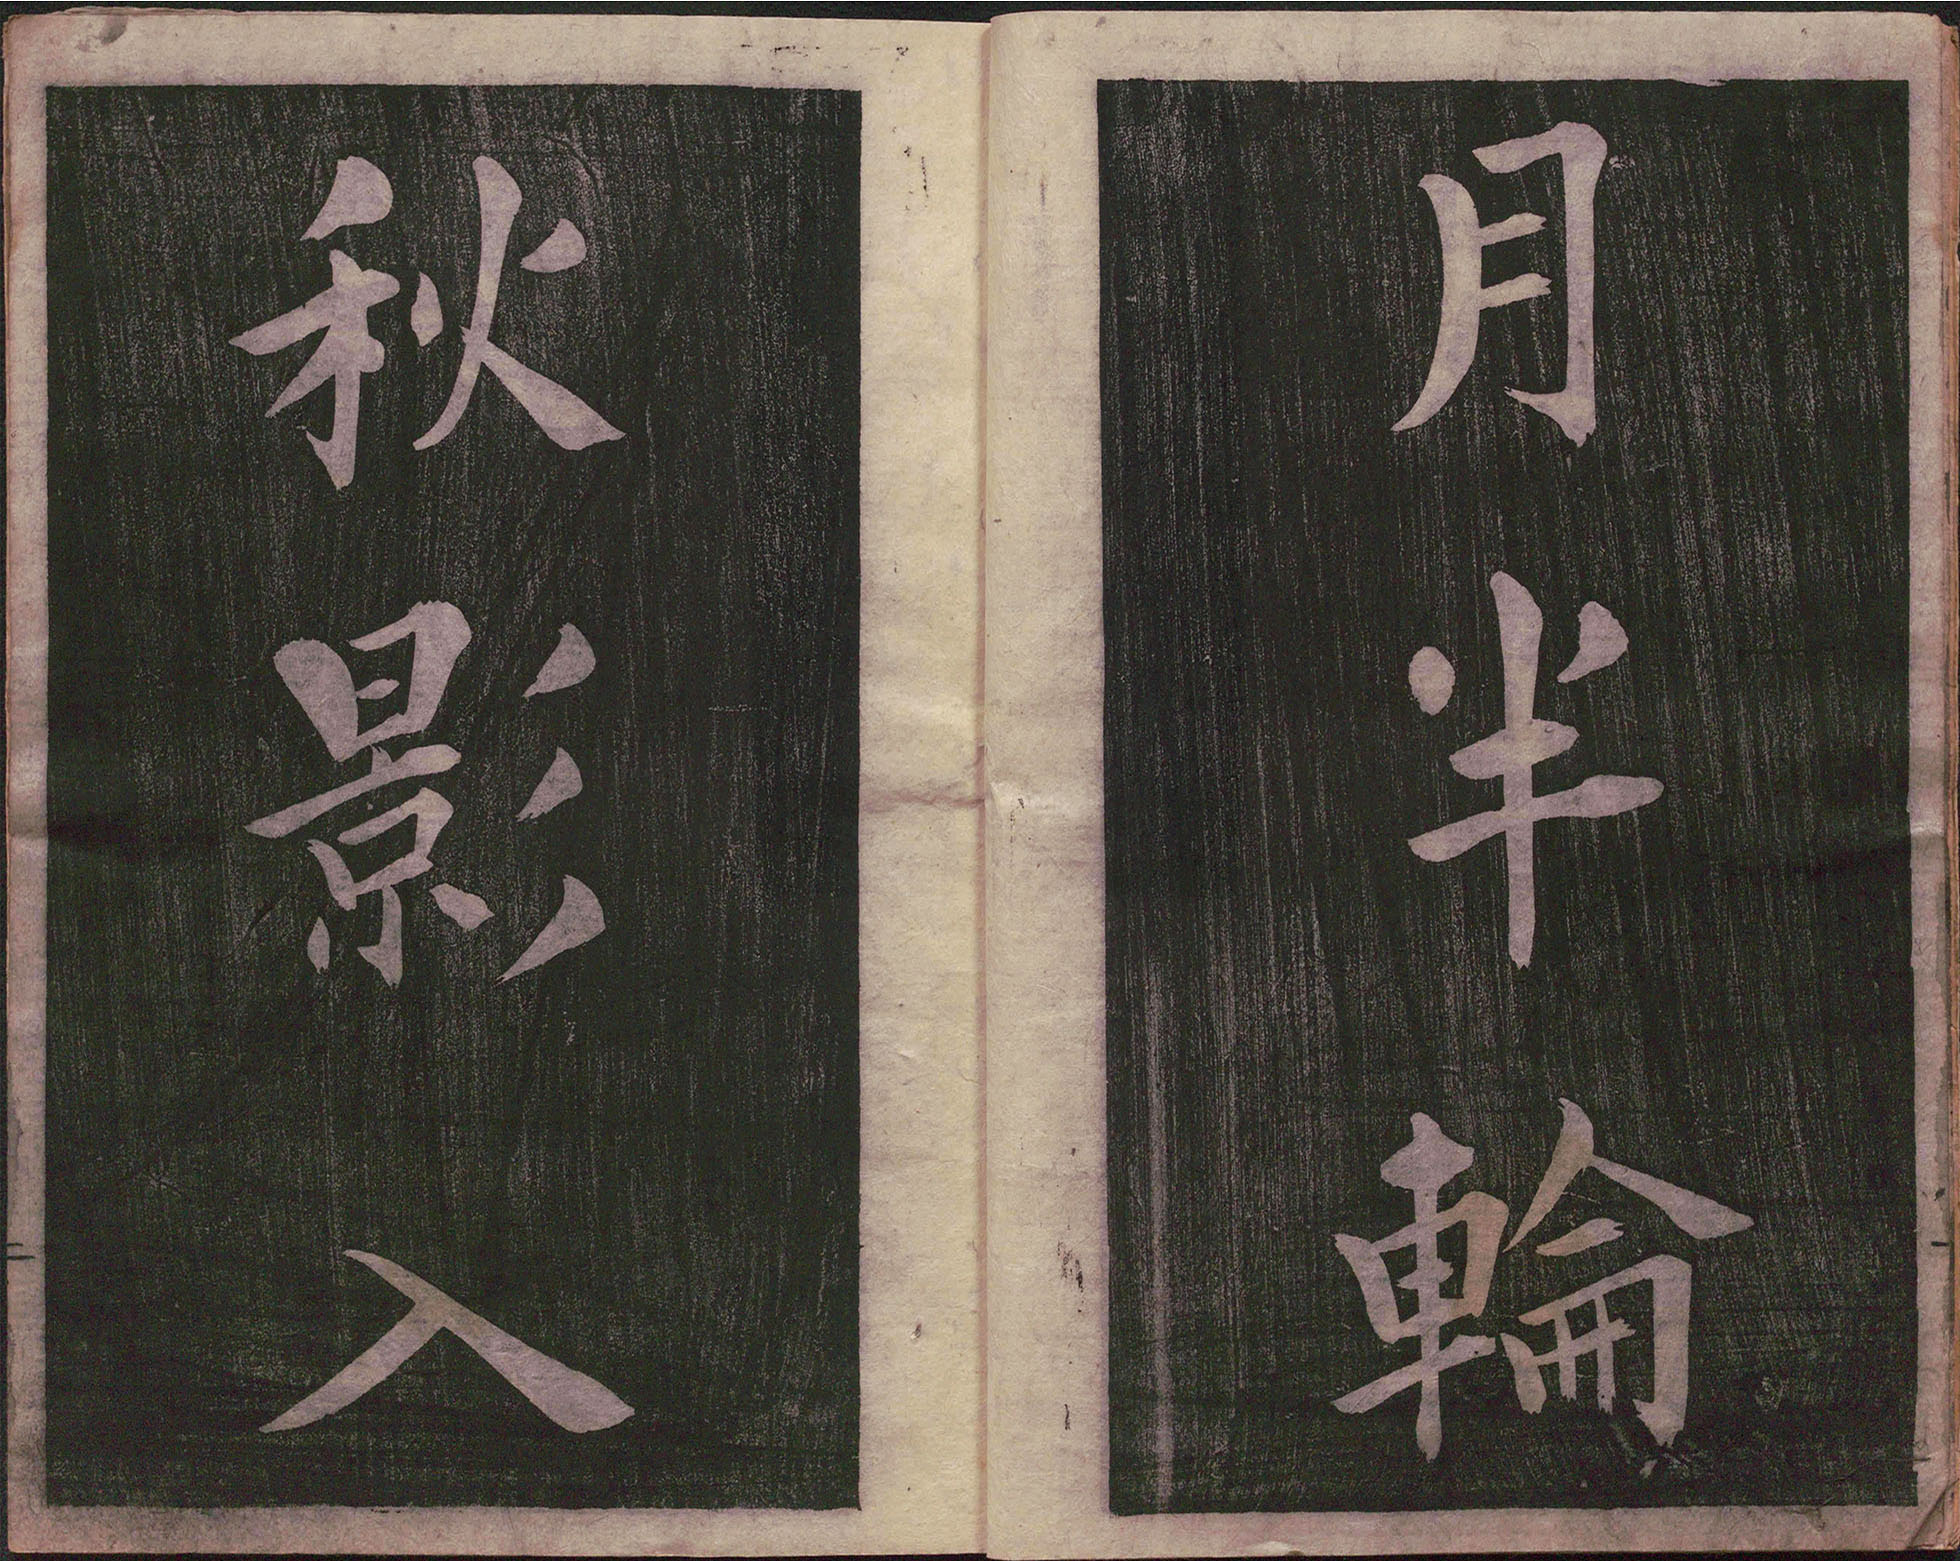 月半輪
秋影入